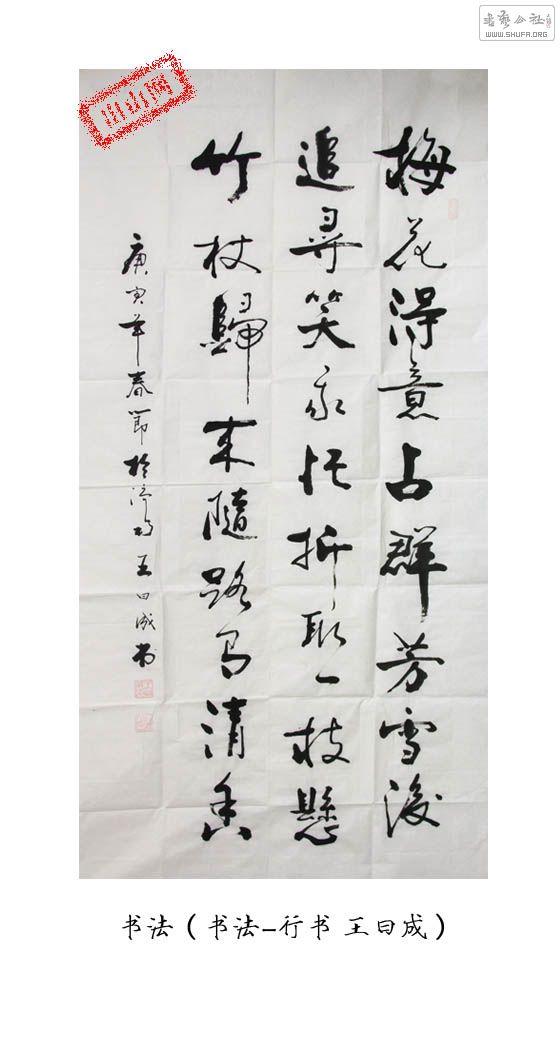 書藝公社
WWW.SHUFA.ORG
梅花得意占群芳雪後
追尋笑我忙折取一枝懸
竹杖歸来隨路有清香
庚寅年春節於濟南王曰成书
书法（书法-行书 王曰成）